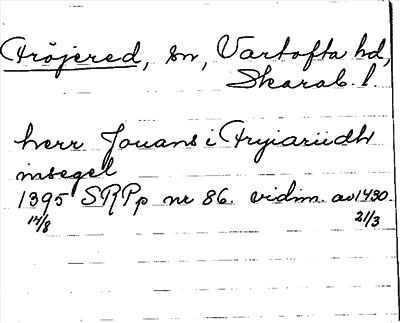 Fröjered, sn, Vartofta hd,
Skarab. l.
herr Jouans i Fryiariidh
insegel
1395 SRPp nr 86. vidim. av 1430.
14/8 21/3